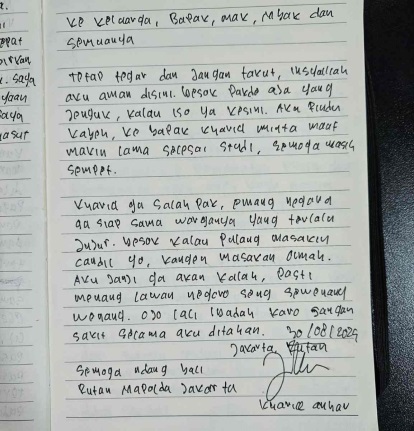 a.
epat
dirkan
k. saya
yaan
saya
asur
Ke Keluarga, Bapak, mak, Mbak dan
semuanya
tetap tegar dan jangan takut, insyallah
aku aman disini. besok Pakde ada yang
Jenguk, kalau iso ya kesini. Aku Rindu
kabeh, ke bapak Kharid minta maaf
makin lama selesai studi, semoga masih
sempet.
Kharid ga salah Pak, emang negara
ga siap sama warganya yang terlalu
Jujur. besok kalau Pulang masakin
candil yo, kangen masakan Omah.
Aku Janji ga akan kalah, Pasti
menang lawan negoro seng sewenang
wenang. Ojo lali Ibadah karo Jangan
sakit selama aku ditahan. 30/08/2025
Jakarta, Rutan
Semoga ndang bali
Rutan Mapolda Jakarta
Kharid anhar